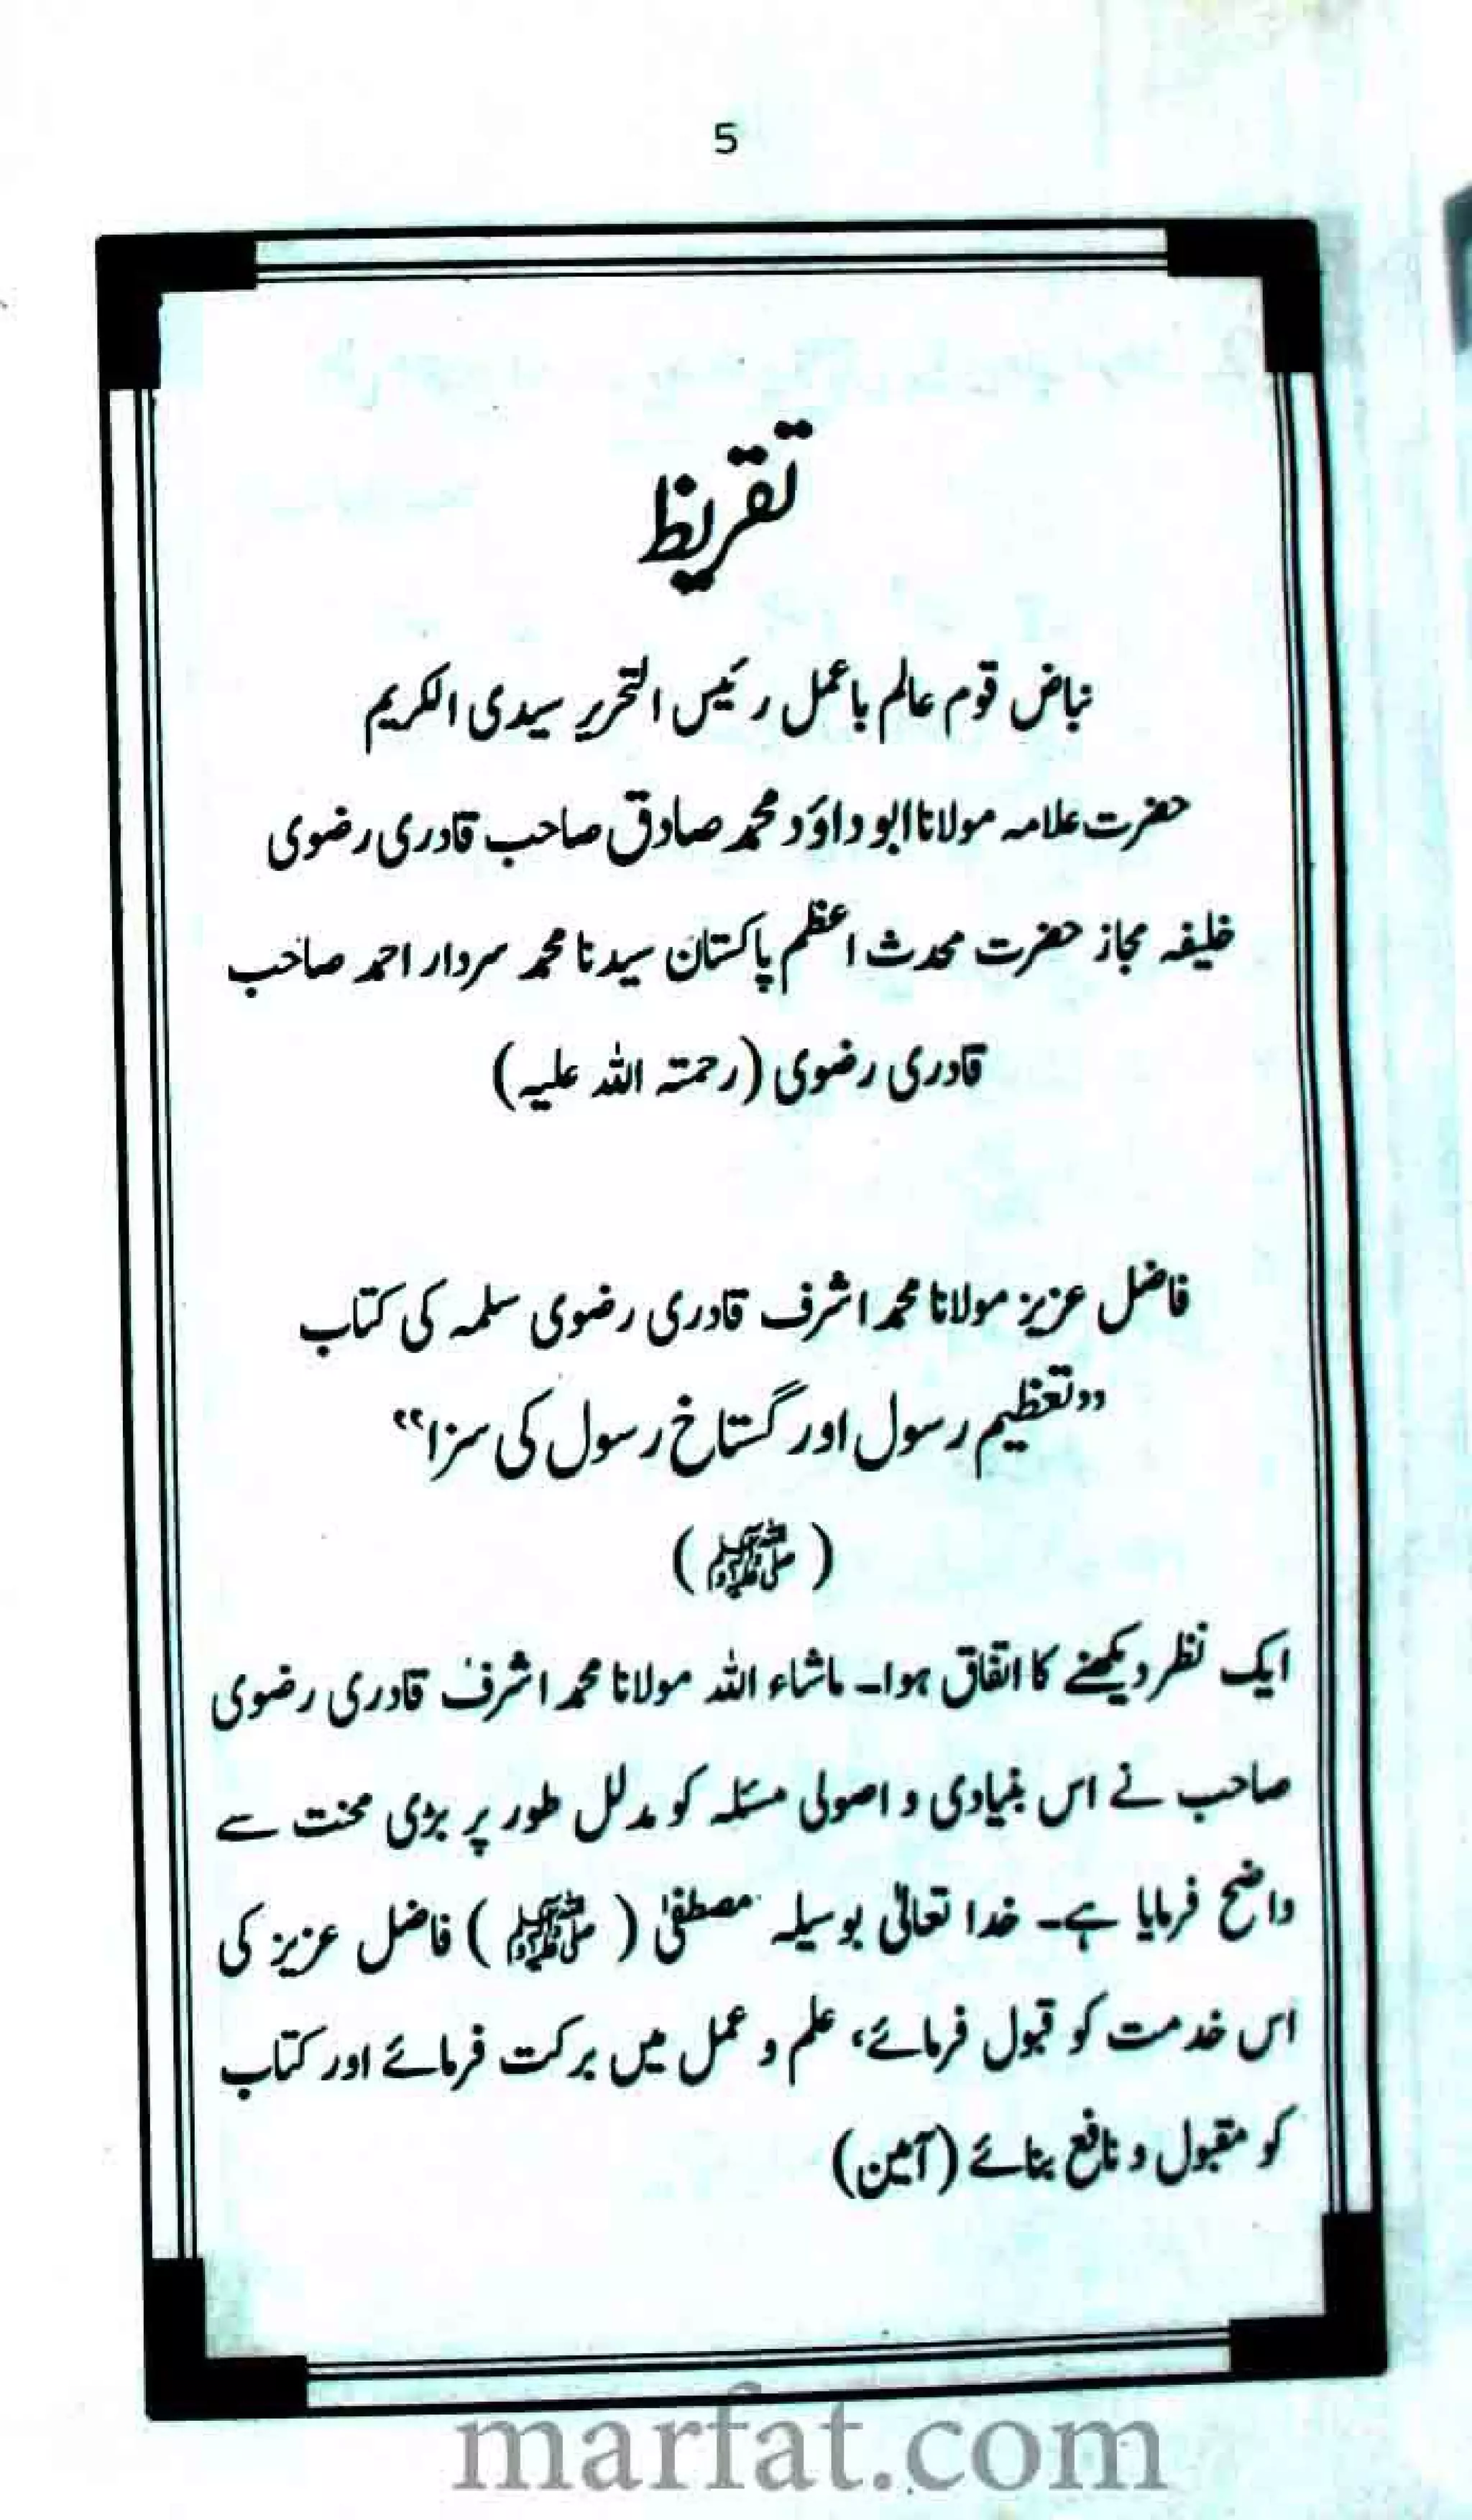 5
تقریظ
نباض قوم عالم باعمل رئیس التحریر سیدی الکریم
حضرت علامہ مولانا ابو داؤد محمد صادق صاحب قادری رضوی
خلیفہ مجاز حضرت محدث اعظم پاکستان سیدنا محمد سردار احمد صاحب
قادری رضوی (رحمتہ اللہ علیہ)
فاضل عزیز مولانا محمد اشرف قادری رضوی سلمہ کی کتاب
"تعظیم رسول اور گستاخ رسول کی سزا"
(ﷺ)
ایک نظر دیکھنے کا اتفاق ہوا۔ ماشاء اللہ مولانا محمد اشرف قادری رضوی
صاحب نے اس بنیادی و اصولی مسئلہ کو مدلل طور پر بڑی محنت سے
واضح فرمایا ہے۔ خدا تعالیٰ بوسیلہ مصطفیٰ (ﷺ) فاضل عزیز کی
اس خدمت کو قبول فرمائے، علم و عمل میں برکت فرمائے اور کتاب
کو مقبول و نافع بنائے (آمین)
marfat.com